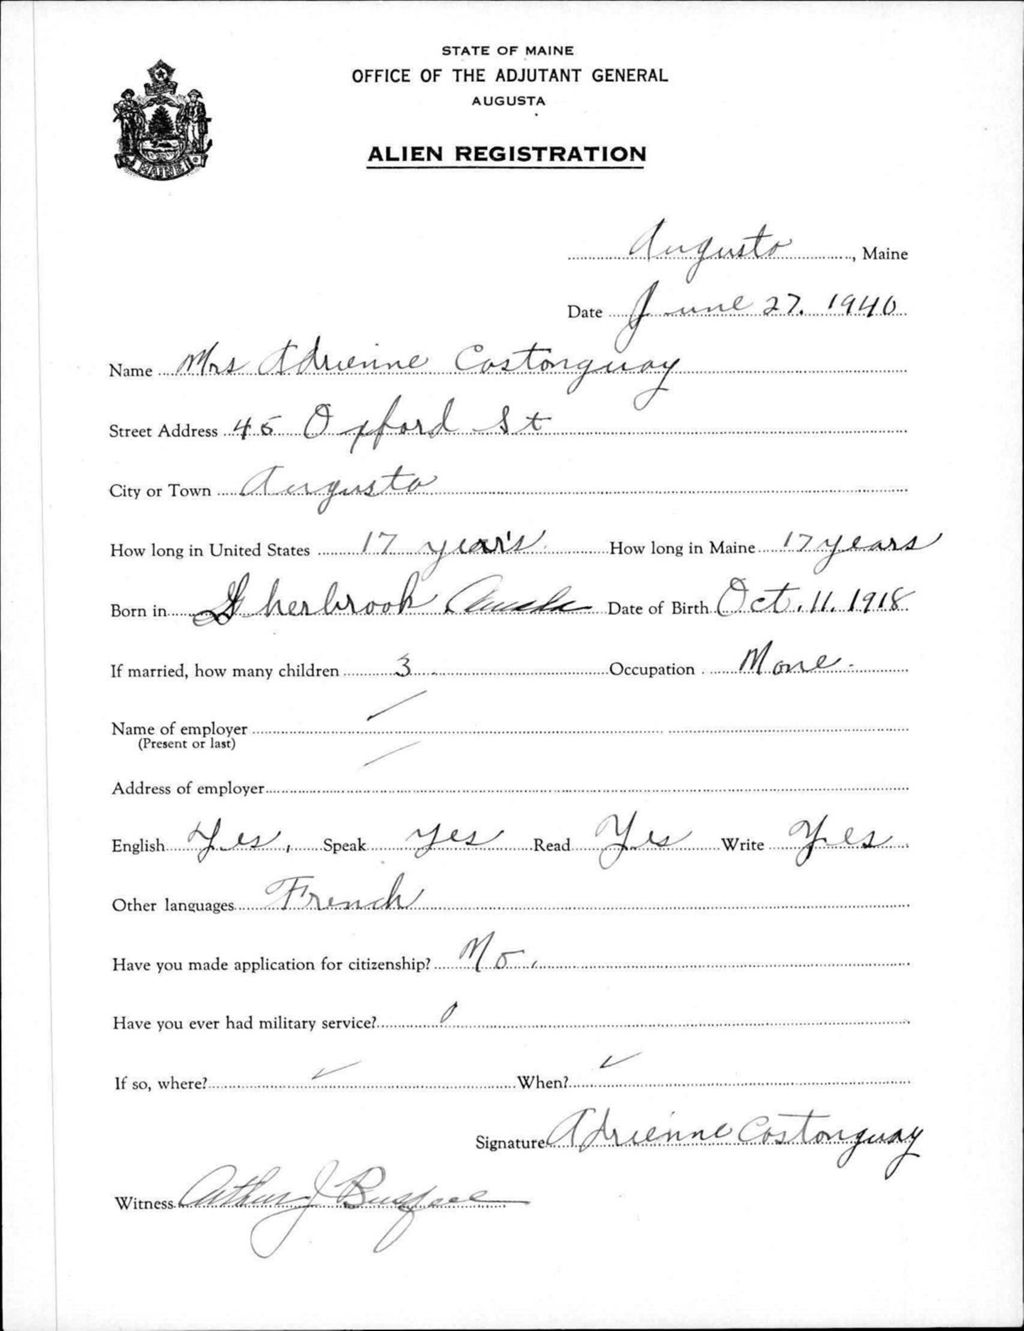 STATE OF MAINE
OFFICE OF THE ADJUTANT GENERAL
AUGUSTA
ALIEN REGISTRATION
MAINE
Augusta, Maine
Date June 27. 1940
Name Mrs Adrienne Costonguay
Street Address 45 Oxford St
City or Town Augusta
How long in United States 17 years How long in Maine 17 years
Born in Sherbrook Canada Date of Birth Oct. 11. 1918
If married, how many children 3 Occupation None
Name of employer
(Present or last)
Address of employer
English Yes, Speak yes Read Yes Write Yes
Other languages French
Have you made application for citizenship? No.
Have you ever had military service? 0
If so, where? When?
Signature Adrienne Costonguay
Witness Arthur J